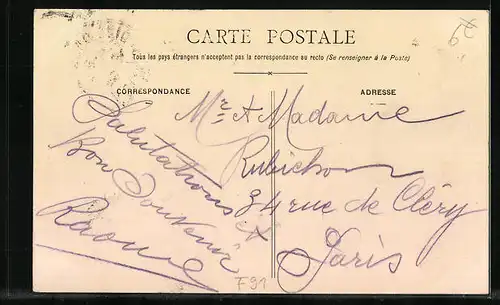 CARTE POSTALE
Tous les pays étrangers n'acceptent pas la correspondance au recto (Se renseigner à la Poste)
CORRESPONDANCE
ADRESSE
Salutations et
Bon Souvenir
Raoul
Mr et Madame
Rubichon
34 rue de Cléry
Paris
F91
6